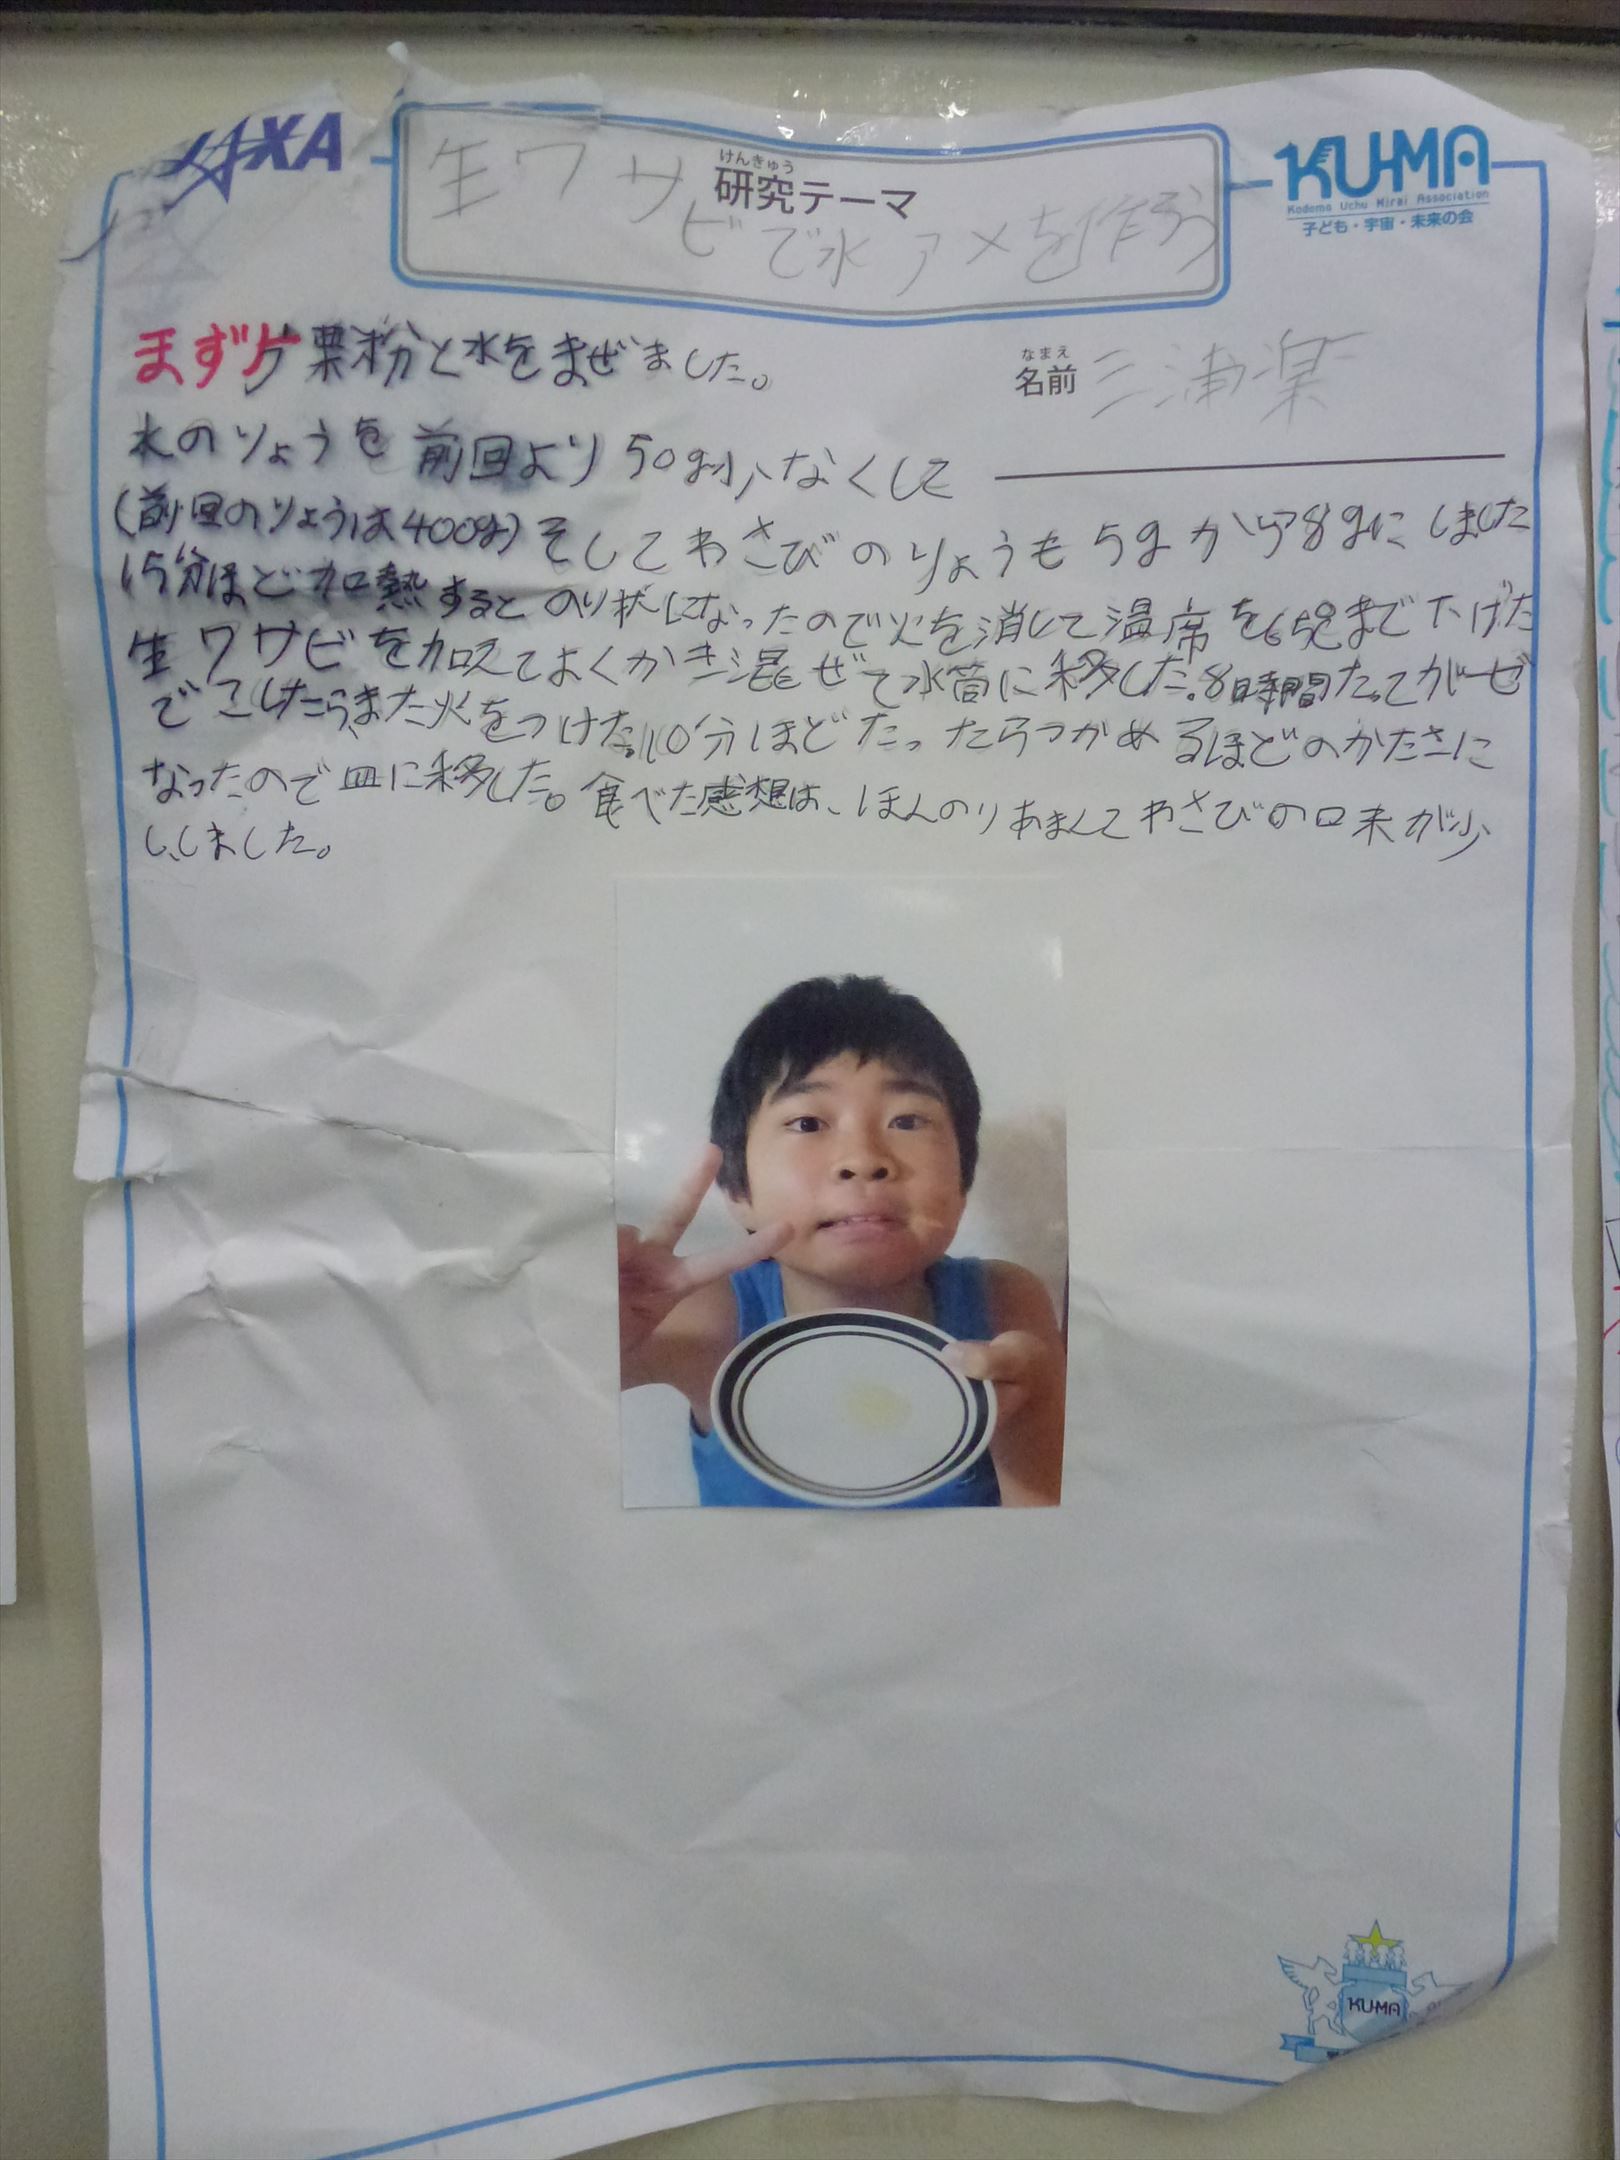 JAXA
けんきゅう
研究テーマ
生ワサビで水アメを作ろう
KUMA
Kodomo Uchu Mirai Association
子ども・宇宙・未来の会
まず片栗粉と水をまぜました。
なまえ
名前 三浦楽
水のりょうを前回より50g少なくして
(前回のりょうは400g)そしてわさびのりょうも5gから8gにしました
15分ほど加熱するとのり状になったので火を消して温席を65℃まで下げた
生ワサビを加えてよくかき混ぜて水筒に移した。8時間たってガーゼ
でこしたらまた火をつけた。10分ほどたったらつかめるほどのかたさに
なったので皿に移した。食べた感想は、ほんのりあまくてわさびの味が少
ししました。
KUMA